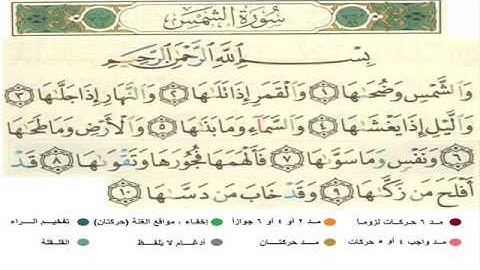 سُورَةُ الشَّمْسِ
بِسْمِ اللَّهِ الرَّحْمَٰنِ الرَّحِيمِ
وَالشَّمْسِ وَضُحَاهَا ١ وَالْقَمَرِ إِذَا تَلَاهَا ٢ وَالنَّهَارِ إِذَا جَلَّاهَا ٣
وَاللَّيْلِ إِذَا يَغْشَاهَا ٤ وَالسَّمَاءِ وَمَا بَنَاهَا ٥ وَالْأَرْضِ وَمَا طَحَاهَا
٦ وَنَفْسٍ وَمَا سَوَّاهَا ٧ فَأَلْهَمَهَا فُجُورَهَا وَتَقْوَاهَا ٨ قَدْ
أَفْلَحَ مَن زَكَّاهَا ٩ وَقَدْ خَابَ مَن دَسَّاهَا ١٠
مد ٦ حركات لزوماً مد ٢ أو ٤ أو ٦ جوازاً إخفاء ، مواقع الغنة (حركتان) تفخيم الراء
مد واجب ٤ أو ٥ حركات مد حركتان أدغام ، لا يلفظ القلقلة